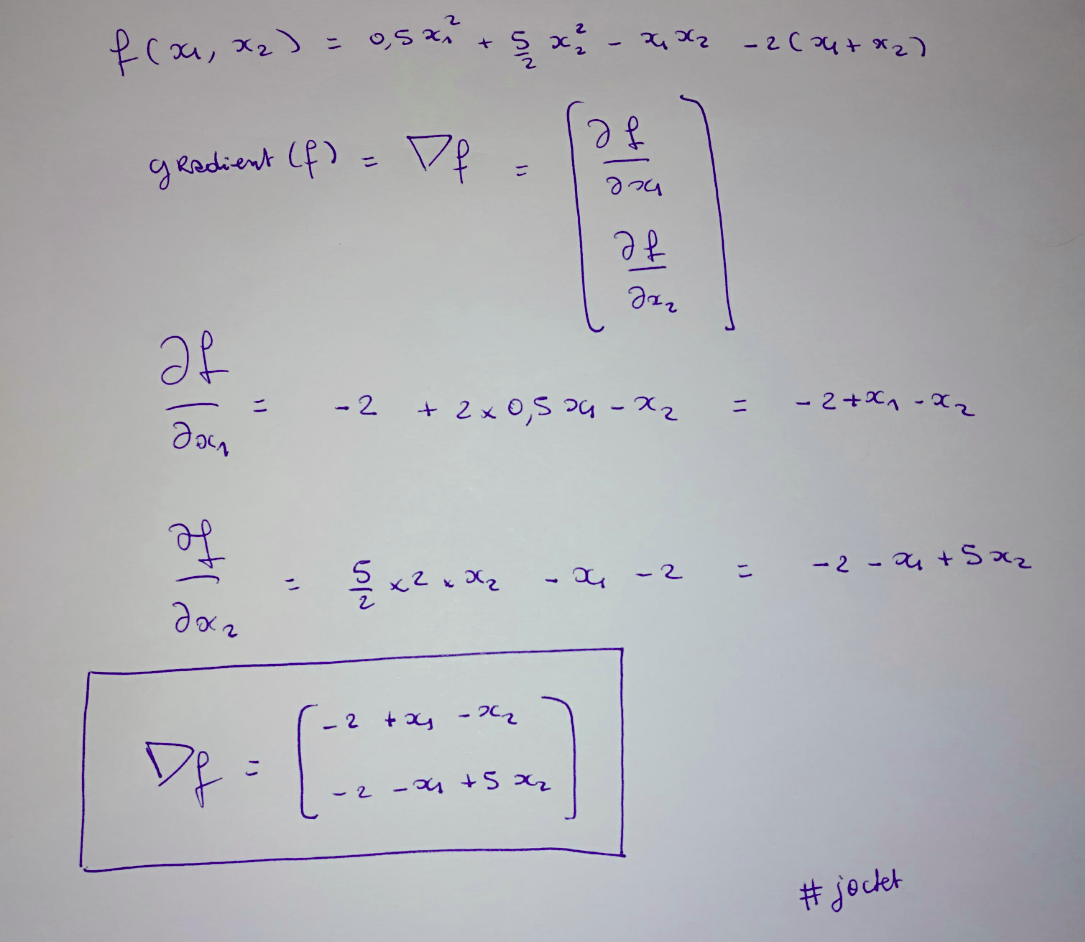 f(x₁, x₂) = 0,5 x₁² + 5/2 x₂² - x₁ x₂ - 2(x₁ + x₂)
gradient (f) = ∇f = [∂f/∂x₁
∂f/∂x₂]
∂f/∂x₁ = -2 + 2 × 0,5 x₁ - x₂ = -2 + x₁ - x₂
∂f/∂x₂ = 5/2 × 2 × x₂ - x₁ - 2 = -2 - x₁ + 5 x₂
∇f = [-2 + x₁ - x₂
-2 - x₁ + 5 x₂]
# jocket